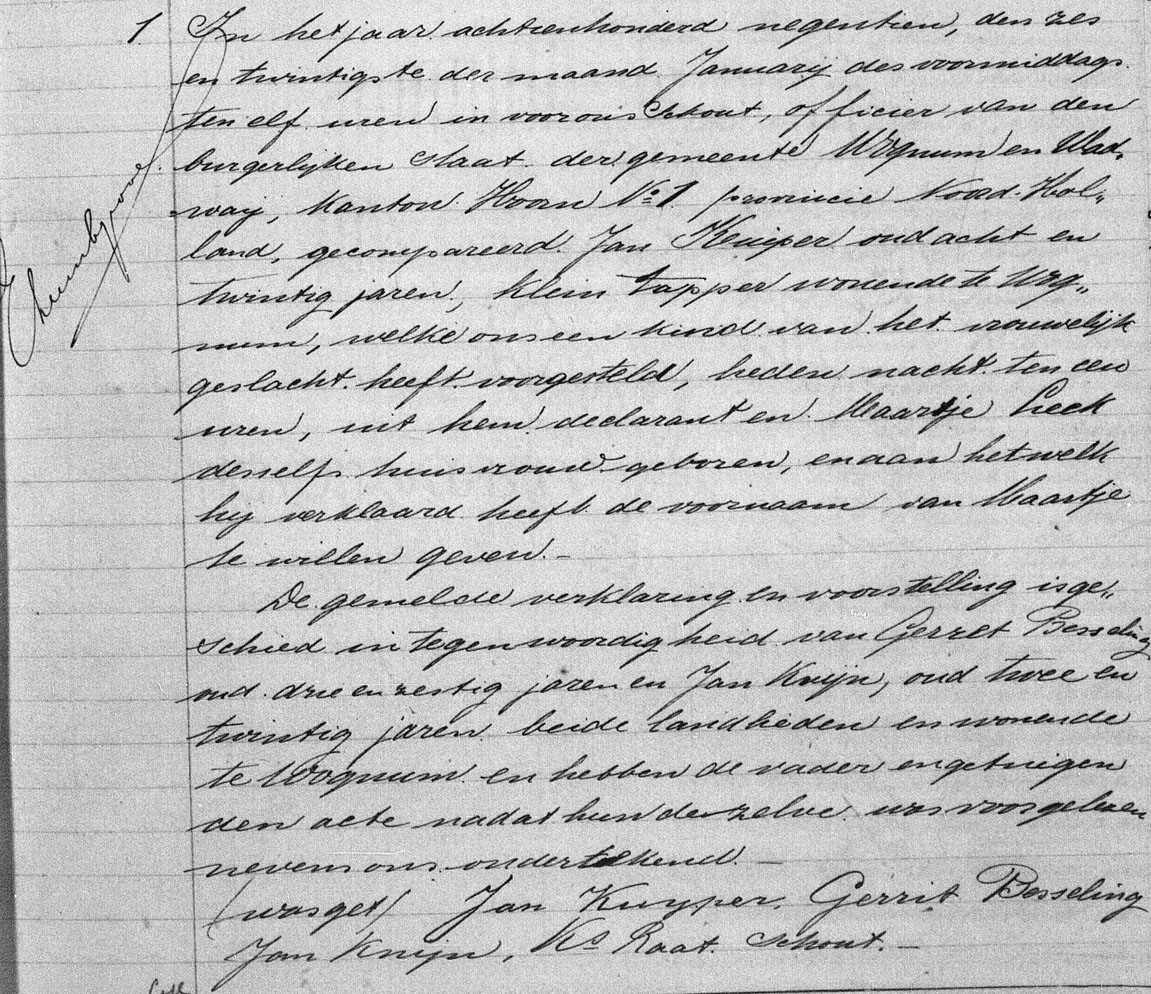 1 In het jaar achttienhonderd negentien, den zes
en twintigste der maand January des voormiddags
ten elf uren in voor ons Schout, officier van den
burgerlijken staat der gemeente Wognum en Wad„
way, Kanton Hoorn No 1 provincie Noad-Hol„
land, gecompareerd Jan Kuiper oud acht en
twintig jaren, klein tapper wonende te Wog„
num, welke ons een kind van het vrouwelijk
geslacht heeft voorgesteld, heden nacht ten een
uren, uit hem declarant en Maartje Leek
desselfs huisvrouw geboren, en aan hetwelk
hij verklaard heeft de voornaam van Maartje
te willen geven.-
De gemelde verklaring en voorstelling is ge„
schied in tegenwoordigheid van Gerret Besseling
oud drie en zestig jaren en Jan Knijn, oud twee en
twintig jaren beide landlieden en wonende
te Wognum en hebben de vader en getuigen
den acte nadat hun dezelve was voorgelezen
nevens ons ondertekend.-
(was get) Jan Kuyper, Gerrit Besseling
Jan Knijn, Ks Raat Schout.-